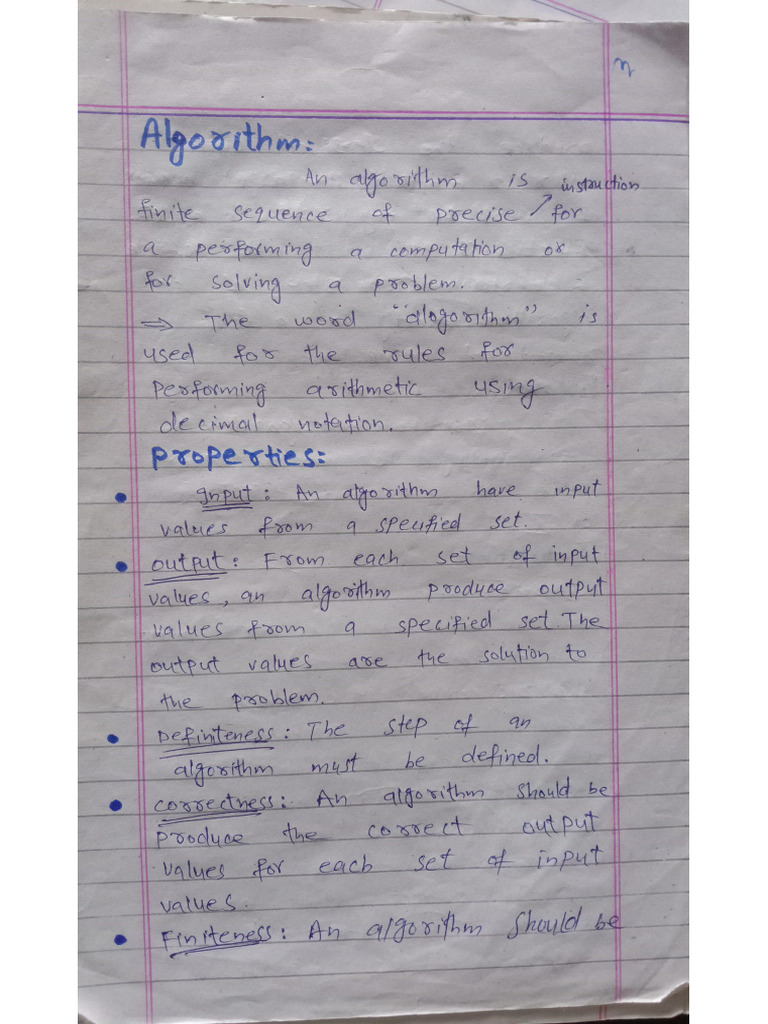 n
Algorithm:
An algorithm is instruction
finite sequence of precise for
a performing a computation or
for solving a problem.
⇒ The word "alogorithm" is
used for the rules for
performing arithmetic using
decimal notation.
Properties:
• Input: An algorithm have input
values from a specified set.
• output: From each set of input
values, an algorithm produce output
values from a specified set. The
output values are the solution to
the problem.
• Definiteness: The step of an
algorithm must be defined.
• correctness: An algorithm should be
produce the correct output
values for each set of input
values.
• Finiteness: An algorithm should be